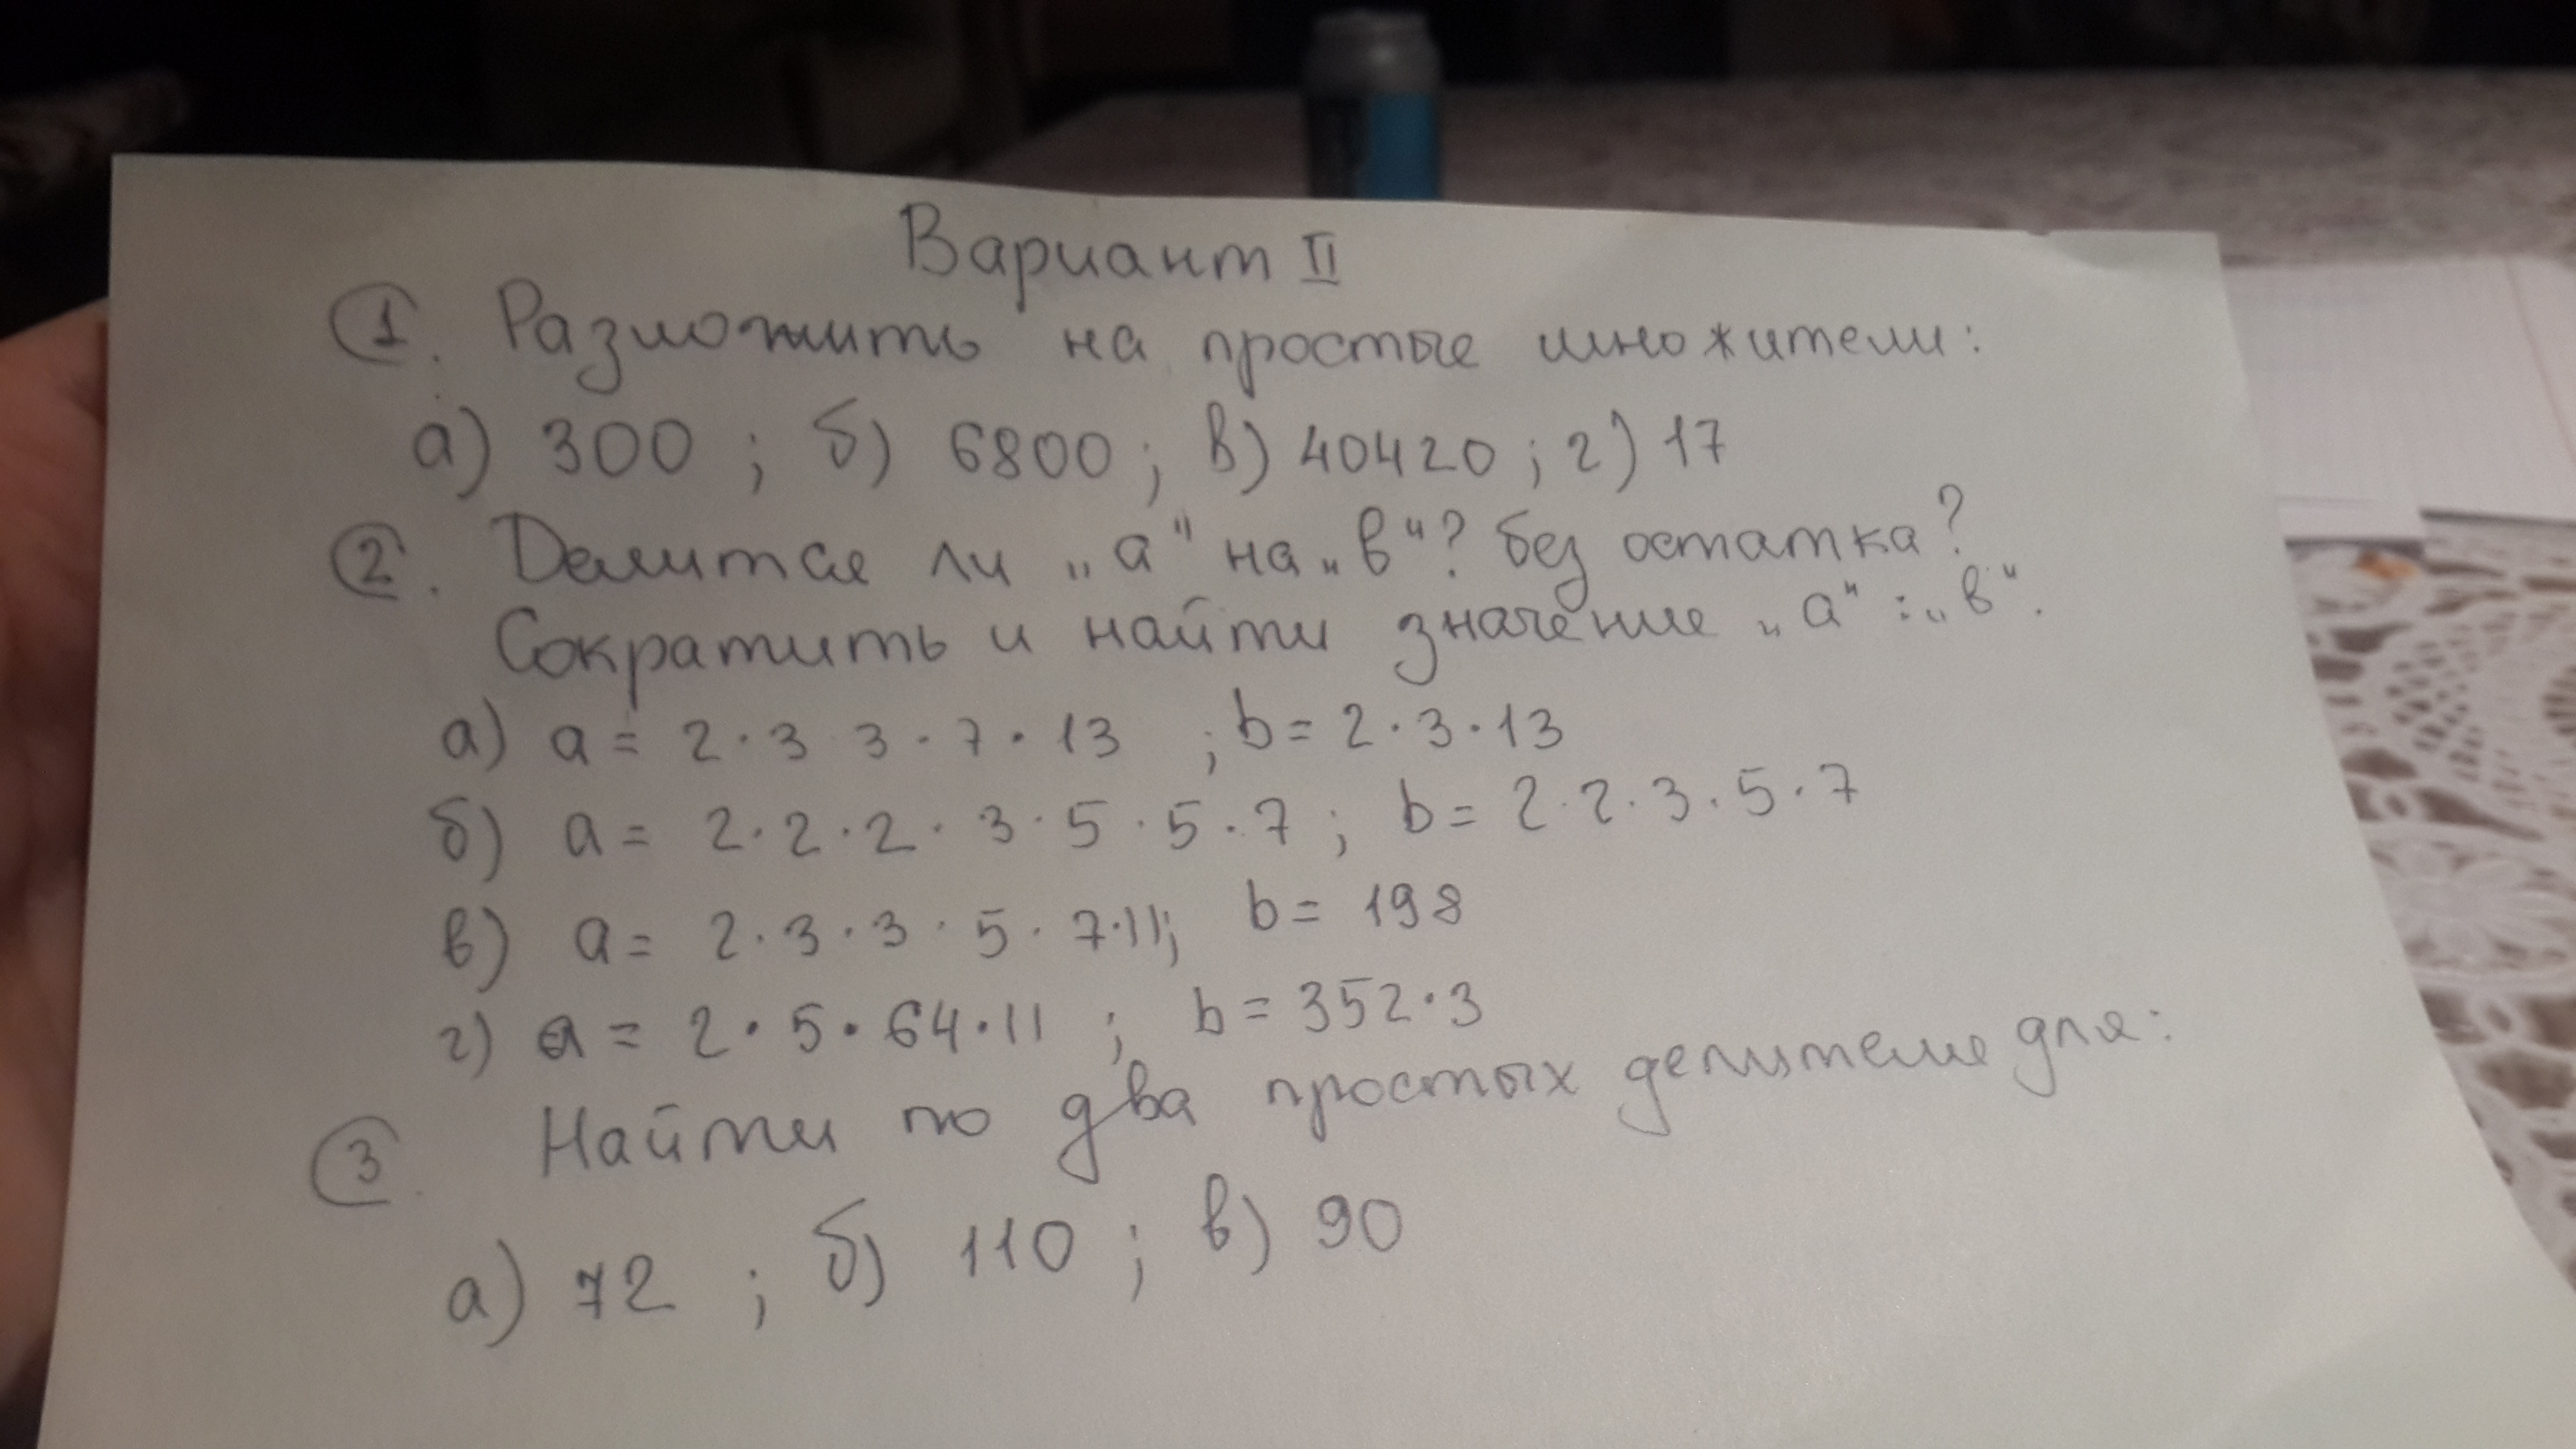 Вариант II
1. Разложить на простые множители:
а) 300 ; б) 6800 ; в) 40420 ; г) 17
2. Делится ли „а" на „в"? без остатка?
Сократить и найти значение „а" : „в".
а) a = 2 · 3 3 · 7 · 13 ; b = 2 · 3 · 13
б) a = 2 · 2 · 2 · 3 · 5 · 5 · 7 ; b = 2 · 2 · 3 · 5 · 7
в) a = 2 · 3 · 3 · 5 · 7 · 11; b = 198
г) a = 2 · 5 · 64 · 11 ; b = 352 · 3
3. Найти по два простых делителя для:
а) 72 ; б) 110 ; в) 90